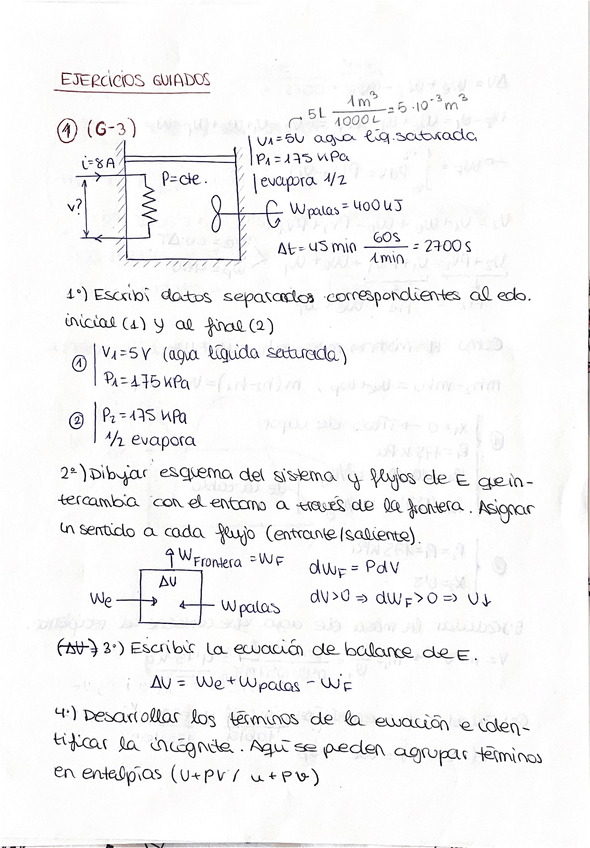 EJERCICIOS GUIADOS
5L 1m³/1000L = 5·10⁻³ m³
① (G-3)
V₁=5L agua líq.saturada
P₁=175 kPa
evapora 1/2
i=8A
P=cte.
v?
Wpalas=400kJ
Δt=45min 60s/1min = 2700s
1º) Escribí datos separados correspondientes al edo.
inicial (1) y al final (2)
① V₁=5L (agua líquida saturada)
P₁=175 kPa
② P₂=175 kPa
1/2 evapora
2º) Dibujar esquema del sistema y flujos de E que in-
tercambia con el entorno a través de la frontera. Asignar
un sentido a cada flujo (entrante/saliente).
WFrontera = WF
ΔU
We
Wpalas
dWF = PdV
dV>0 ⇒ dWF>0 ⇒ U↓
3º) Escribir la ecuación de balance de E.
ΔU = We + Wpalas - WF
4º) Desarrollar los términos de la ecuación e iden-
tificar la incógnita. Aquí se pueden agrupar términos
en entalpías (U+PV / u+Pv)